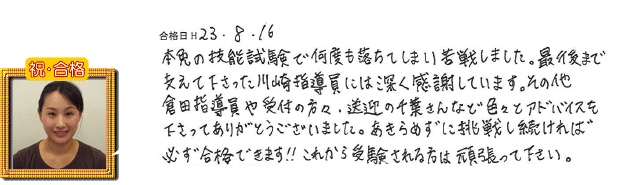 合格日 H 23.8.16
祝・合格
本免の技能試験で何度も落ちてしまい苦戦しました。最後まで
支えて下さった川崎指導員には深く感謝しています。その他
倉田指導員や受付の方々、送迎の千葉さんなど色々とアドバイスを
下さってありがとうございました。あきらめずに挑戦し続ければ
必ず合格できます!!これから受験される方は頑張って下さい。